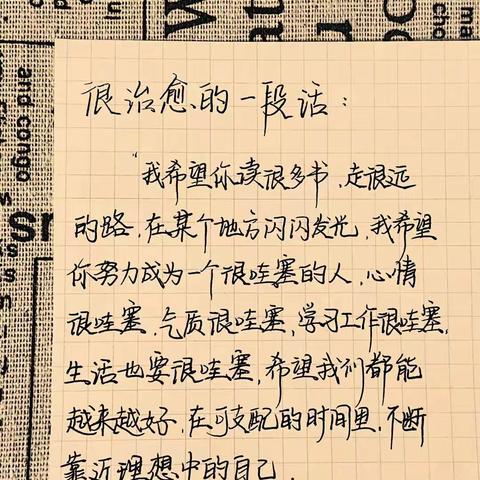 很治愈的一段话:
"我希望你读很多书,走很远
的路,在某个地方闪闪发光,我希望
你努力成为一个很哇塞的人,心情
很哇塞,气质很哇塞,学习工作很哇塞,
生活也要很哇塞,希望我们都能
越来越好,在可支配的时间里,不断
靠近理想中的自己.
and congo